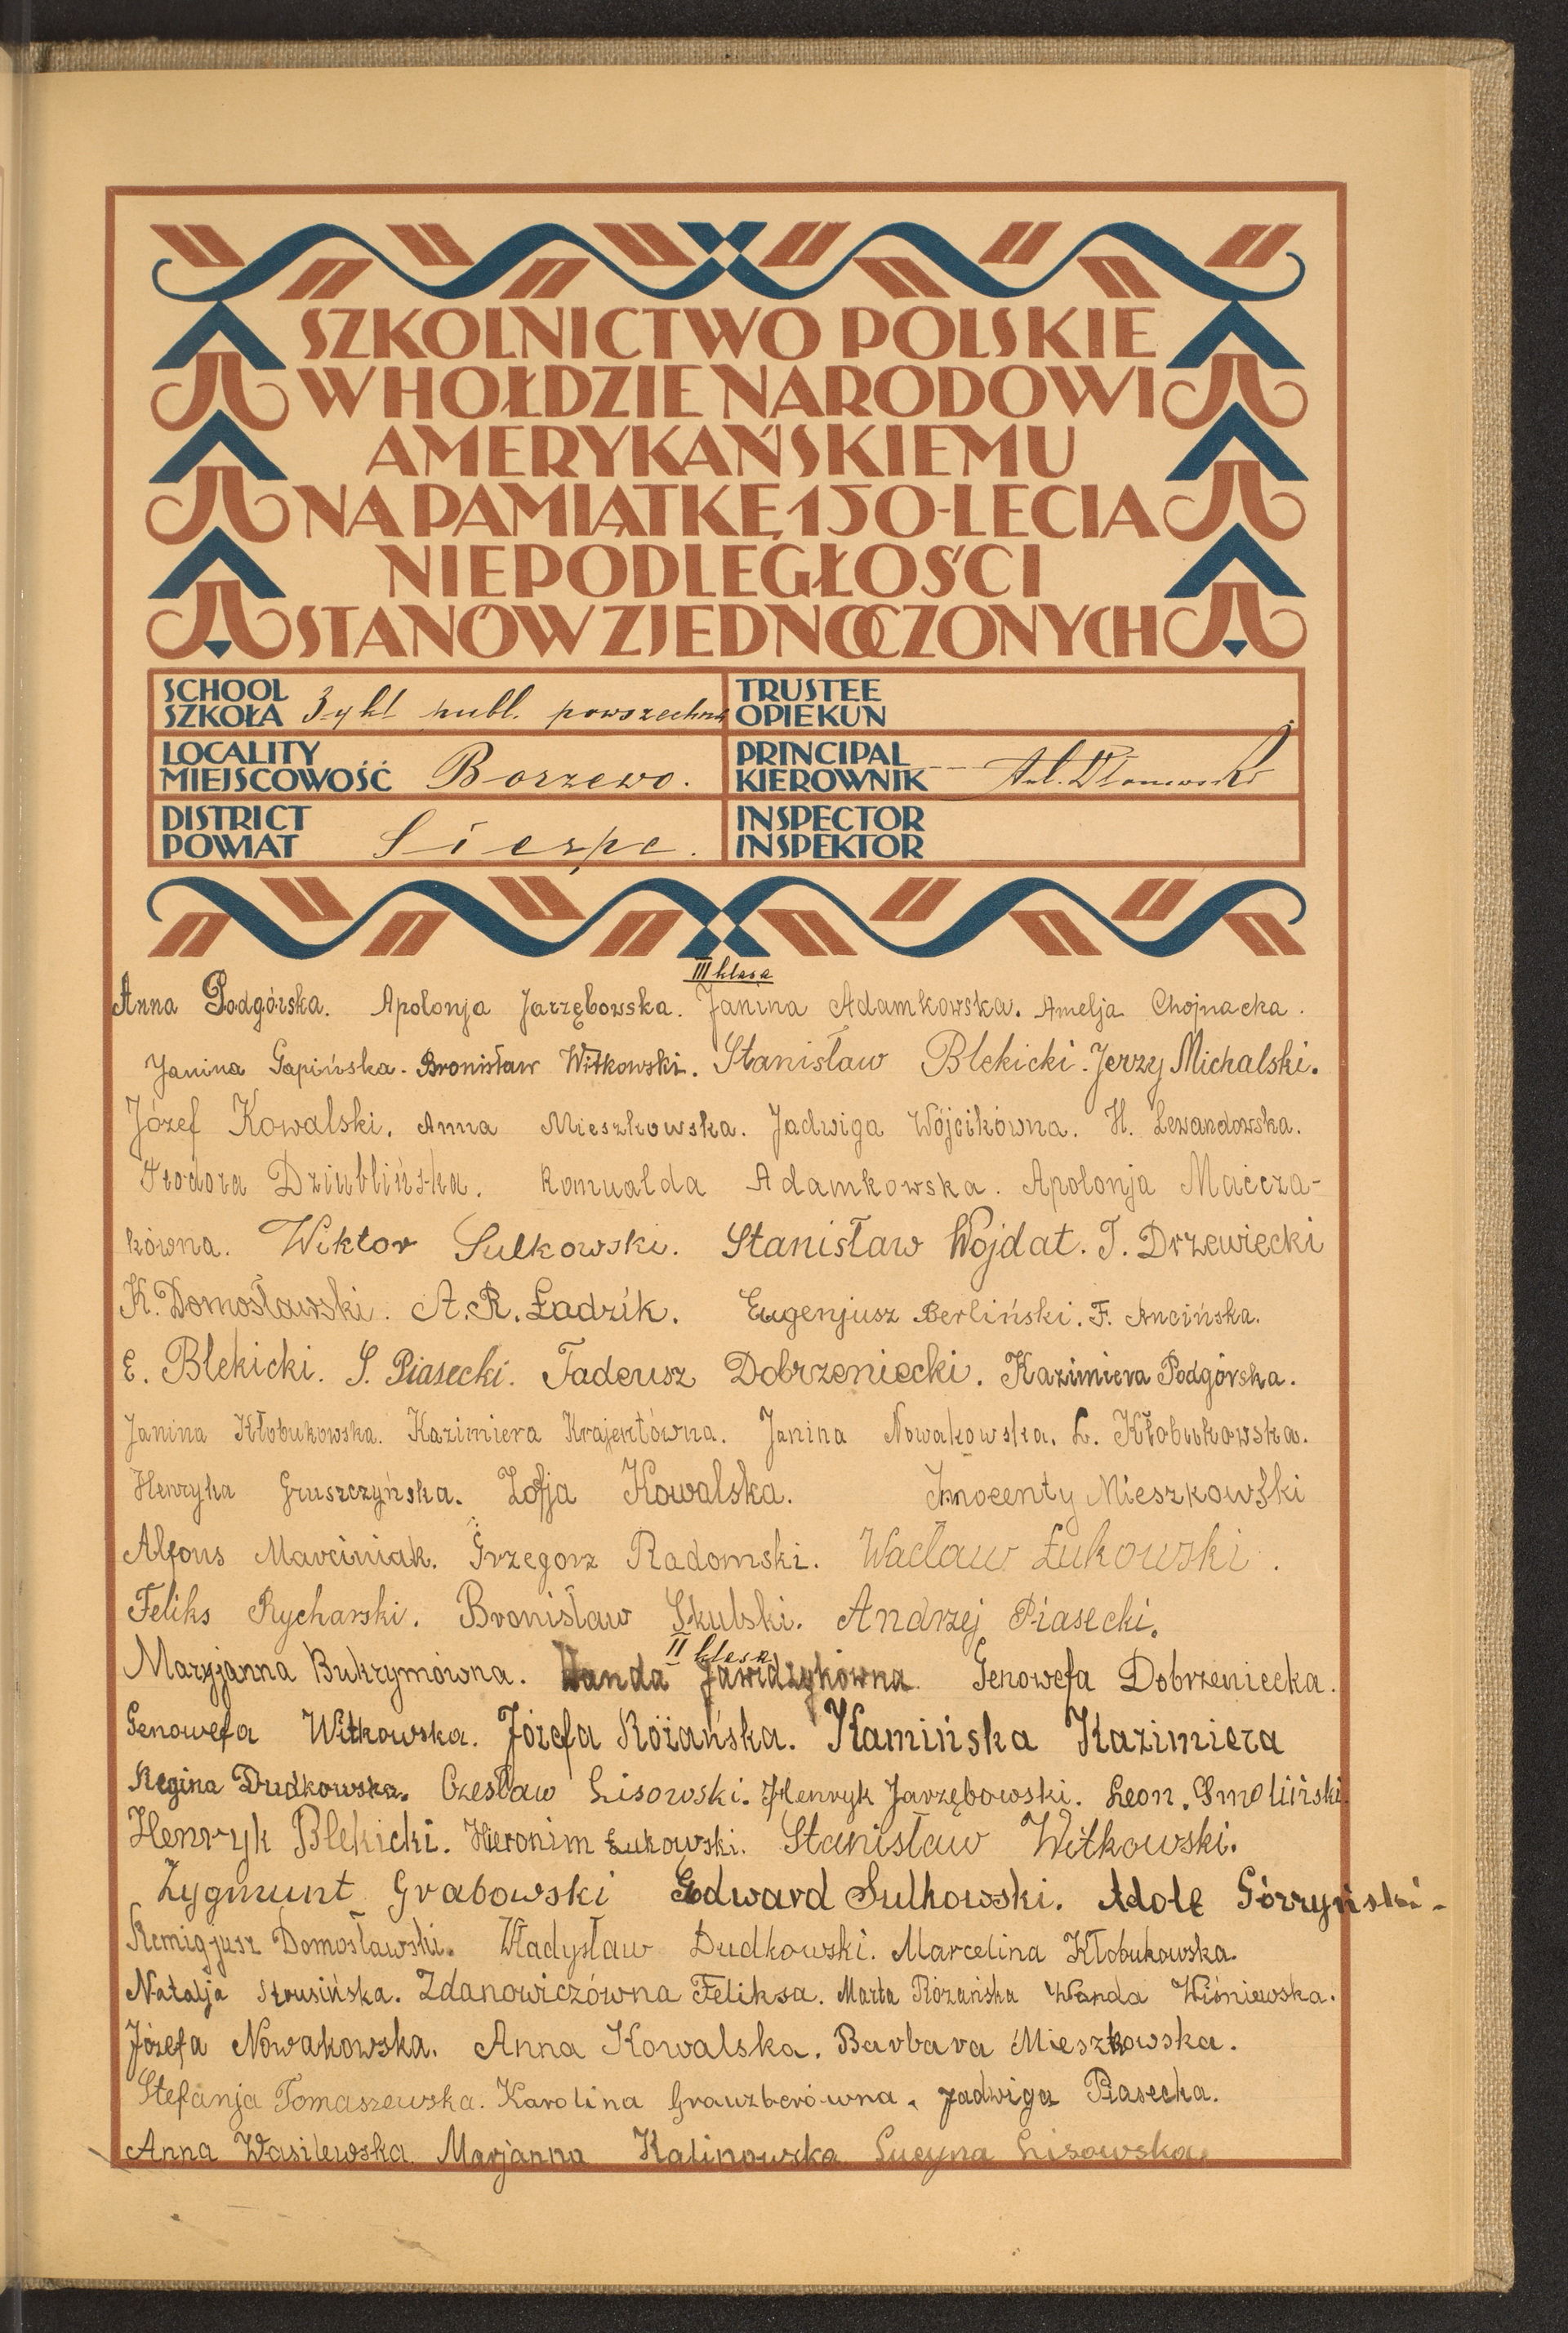 SZKOLNICTWO POLSKIE
W HOŁDZIE NARODOWI
AMERYKAŃSKIEMU
NA PAMIĄTKĘ 150-LECIA
NIEPODLEGŁOŚCI
STANÓW ZJEDNOCZONYCH
SCHOOL
SZKOŁA 3-y kl publ. powszechna
TRUSTEE
OPIEKUN
LOCALITY
MIEJSCOWOŚĆ Borzewo.
PRINCIPAL
KIEROWNIK Ant.
DISTRICT
POWIAT Sierpc.
INSPECTOR
INSPEKTOR
III klasa
Anna Podgórska. Apolonja Jarzębowska. Janina Adamkowska. Amelja Chojnacka.
Janina Gapińska. Bronisław Witkowski. Stanisław Blekicki. Jerzy Michalski.
Józef Kowalski. Anna Mieszkowska. Jadwiga Wójcikówna. H. Lewandowska.
Teodora Dziublińska. Romualda Adamkowska. Apolonja Maćcza-
kówna. Wiktor Sulkowski. Stanisław Wojdat. T. Drzewiecki
K. Domosławski. A. R. Ładzik. Eugenjusz Berliński. F. Ancińska.
E. Blekicki. S. Piasecki. Tadeusz Dobrzeniecki. Kazimiera Podgórska.
Janina Kłobukowska. Kazimiera Krajentówna. Janina Nowakowska. L. Kłobukowska.
Henryka Gruszczyńska. Zofja Kowalska. Innocenty Mieszkowski
Alfons Marciniak. Grzegorz Radomski. Wacław Łukowski.
Feliks Rycharski. Bronisław Skulski. Andrzej Piasecki.
II klasa
Maryjanna Bukrymówna. Wanda Jawidzykówna Genowefa Dobrzeniecka.
Genowefa Witkowska. Józefa Różańska. Kamińska Kazimiera
Regina Dudkowska. Czesław Lisowski. Henryk Jarzębowski. Leon. Smoliński.
Henryk Blekicki. Hieronim Łukowski. Stanisław Witkowski.
Zygmunt Grabowski Edward Sulkowski. Adolf Górzyński.
Remigjusz Domosławski. Władysław Dudkowski. Marcelina Kłobukowska
Natalja Strusińska. Zdanowiczówna Feliksa. Marta Różańska Wanda Wiśniewska.
Józefa Nowakowska. Anna Kowalska. Barbara Mieszkowska.
Stefanja Tomaszewska. Karolina Grauzberówna. Jadwiga Piasecka.
Anna Wasilewska. Marjanna Kalinowska Lucyna Lisowska.